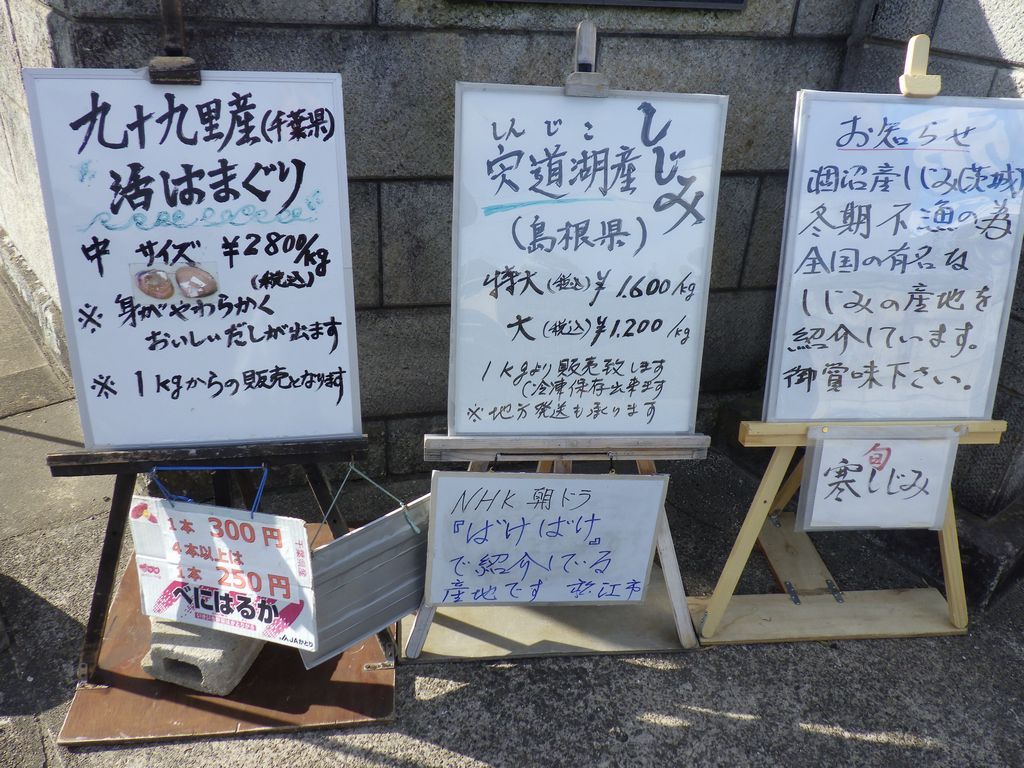 九十九里産(千葉県)
活はまぐり
中 サイズ ¥2800/kg
(税込)
※ 身がやわらかく
おいしいだしが出ます
※ 1kgからの販売となります
1本 300円
4本以上は
1本 250円
べにはるか
JAかとり
しんじこ
宍道湖産
しじみ
(島根県)
特大(税込)¥1.600/kg
大(税込)¥1.200/kg
1kgより販売致します
(冷凍保存出来ます
※地方発送も承ります
NHK 朝ドラ
『ばけばけ』
で紹介している
産地です 松江市
お知らせ
涸沼産しじみ(茨城)
冬期不漁の為
全国の有名な
しじみの産地を
紹介しています。
御賞味下さい。
旬
寒しじみ